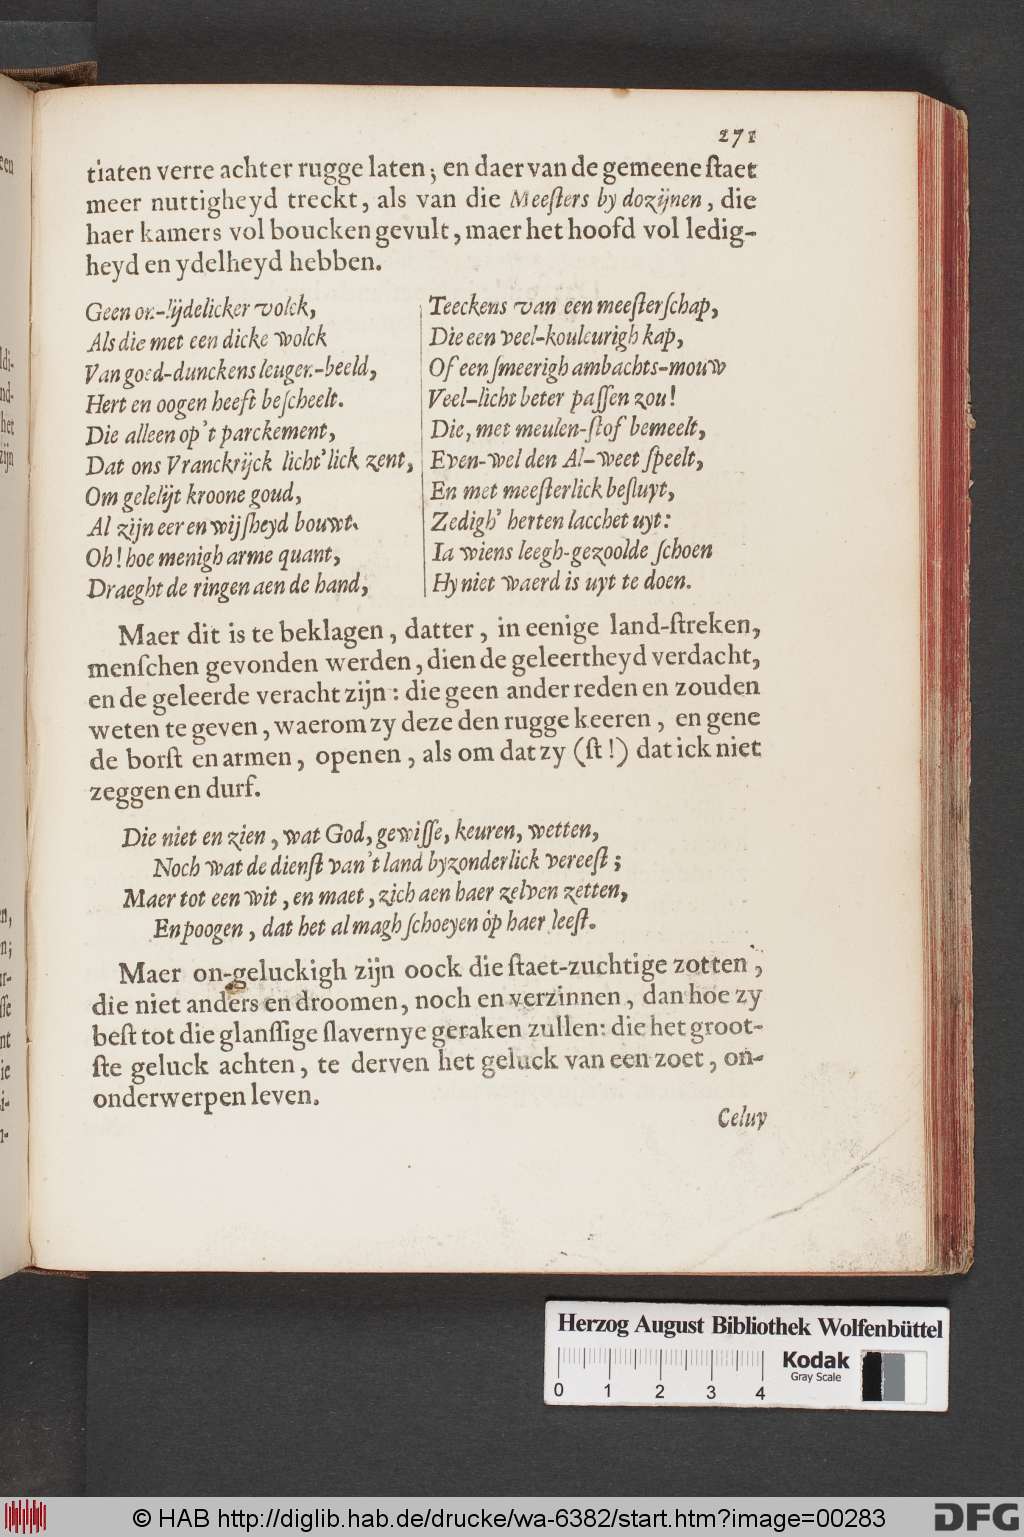 271
tiaten verre achter rugge laten; en daer van de gemeene ſtaet
meer nuttigheyd treckt, als van die Meeſters by dozijnen, die
haer kamers vol boucken gevult, maer het hoofd vol ledig-
heyd en ydelheyd hebben.
Geen on-lijdelicker volck,
Als die met een dicke wolck
Van goed-dunckens leugen-beeld,
Hert en oogen heeft beſcheelt.
Die alleen op't parckement,
Dat ons Vranckrijck licht'lick zent,
Om gelelijt kroone goud,
Al zijn eer en wijſheyd bouwt.
Oh! hoe menigh arme quant,
Draeght de ringen aen de hand,
Teeckens van een meeſterſchap,
Die een veel-kouleurigh kap,
Of een ſmeerigh ambachts-mouw
Veel-licht beter paſſen zou!
Die, met meulen-ſtof bemeelt,
Even-wel den Al-weet ſpeelt,
En met meeſterlick beſluyt,
Zedigh' herten lacchet uyt:
Ia wiens leegh-gezoolde ſchoen
Hy niet waerd is uyt te doen.
Maer dit is te beklagen, datter, in eenige land-ſtreken,
menſchen gevonden werden, dien de geleertheyd verdacht,
en de geleerde veracht zijn: die geen ander reden en zouden
weten te geven, waerom zy deze den rugge keeren, en gene
de borſt en armen, openen, als om dat zy (ſt!) dat ick niet
zeggen en durf.
Die niet en zien, wat God, gewiſſe, keuren, wetten,
Noch wat de dienſt van't land byzonderlick vereeſt;
Maer tot een wit, en maet, zich aen haer zelven zetten,
En poogen, dat het al magh ſchoeyen op haer leeſt.
Maer on-geluckigh zijn oock die ſtaet-zuchtige zotten,
die niet anders en droomen, noch en verzinnen, dan hoe zy
beſt tot die glanſſige ſlavernye geraken zullen: die het groot-
ſte geluck achten, te derven het geluck van een zoet, on-
onderwerpen leven.
Celuy
een
ldi-
nd-
het
zijn
Herzog August Bibliothek Wolfenbüttel
Kodak
Gray Scale
0 1 2 3 4
© HAB http://diglib.hab.de/drucke/wa-6382/start.htm?image=00283
DFG